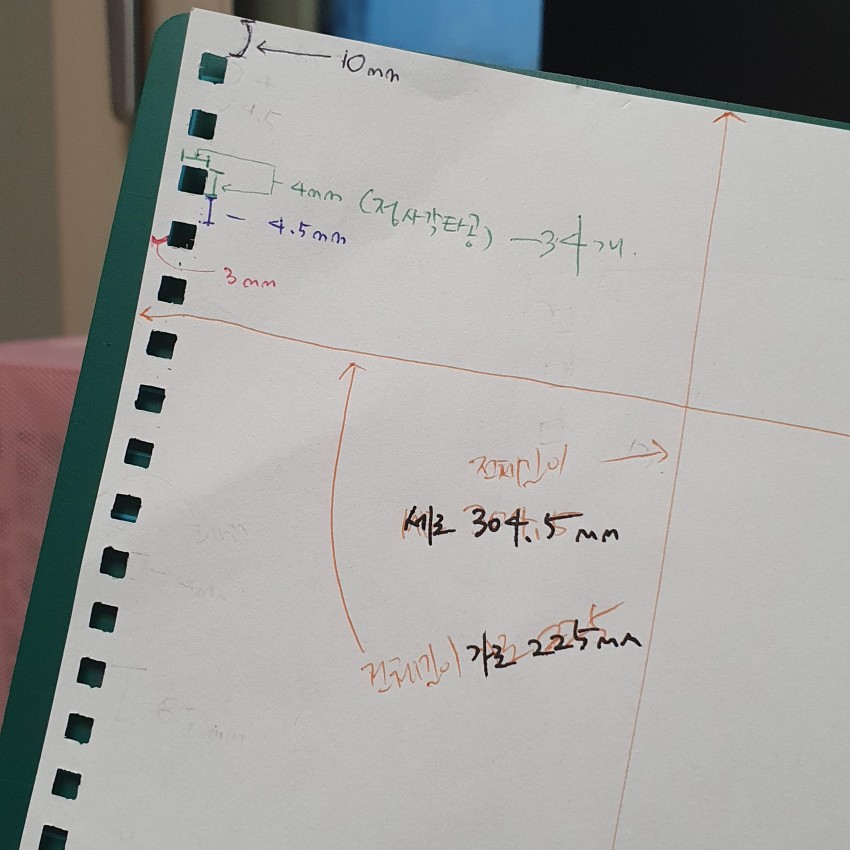 10mm
4mm (정사각타공) - 34개.
4.5mm
3mm
전체길이
세로 304.5mm
전체길이 가로 225mm